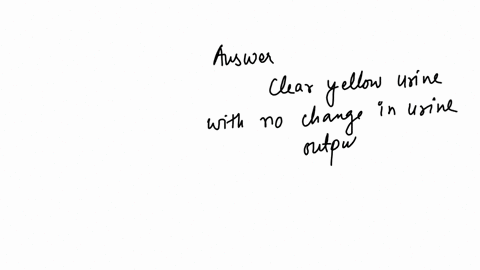 Answer
Clear yellow urine
with no change in urine
outpu